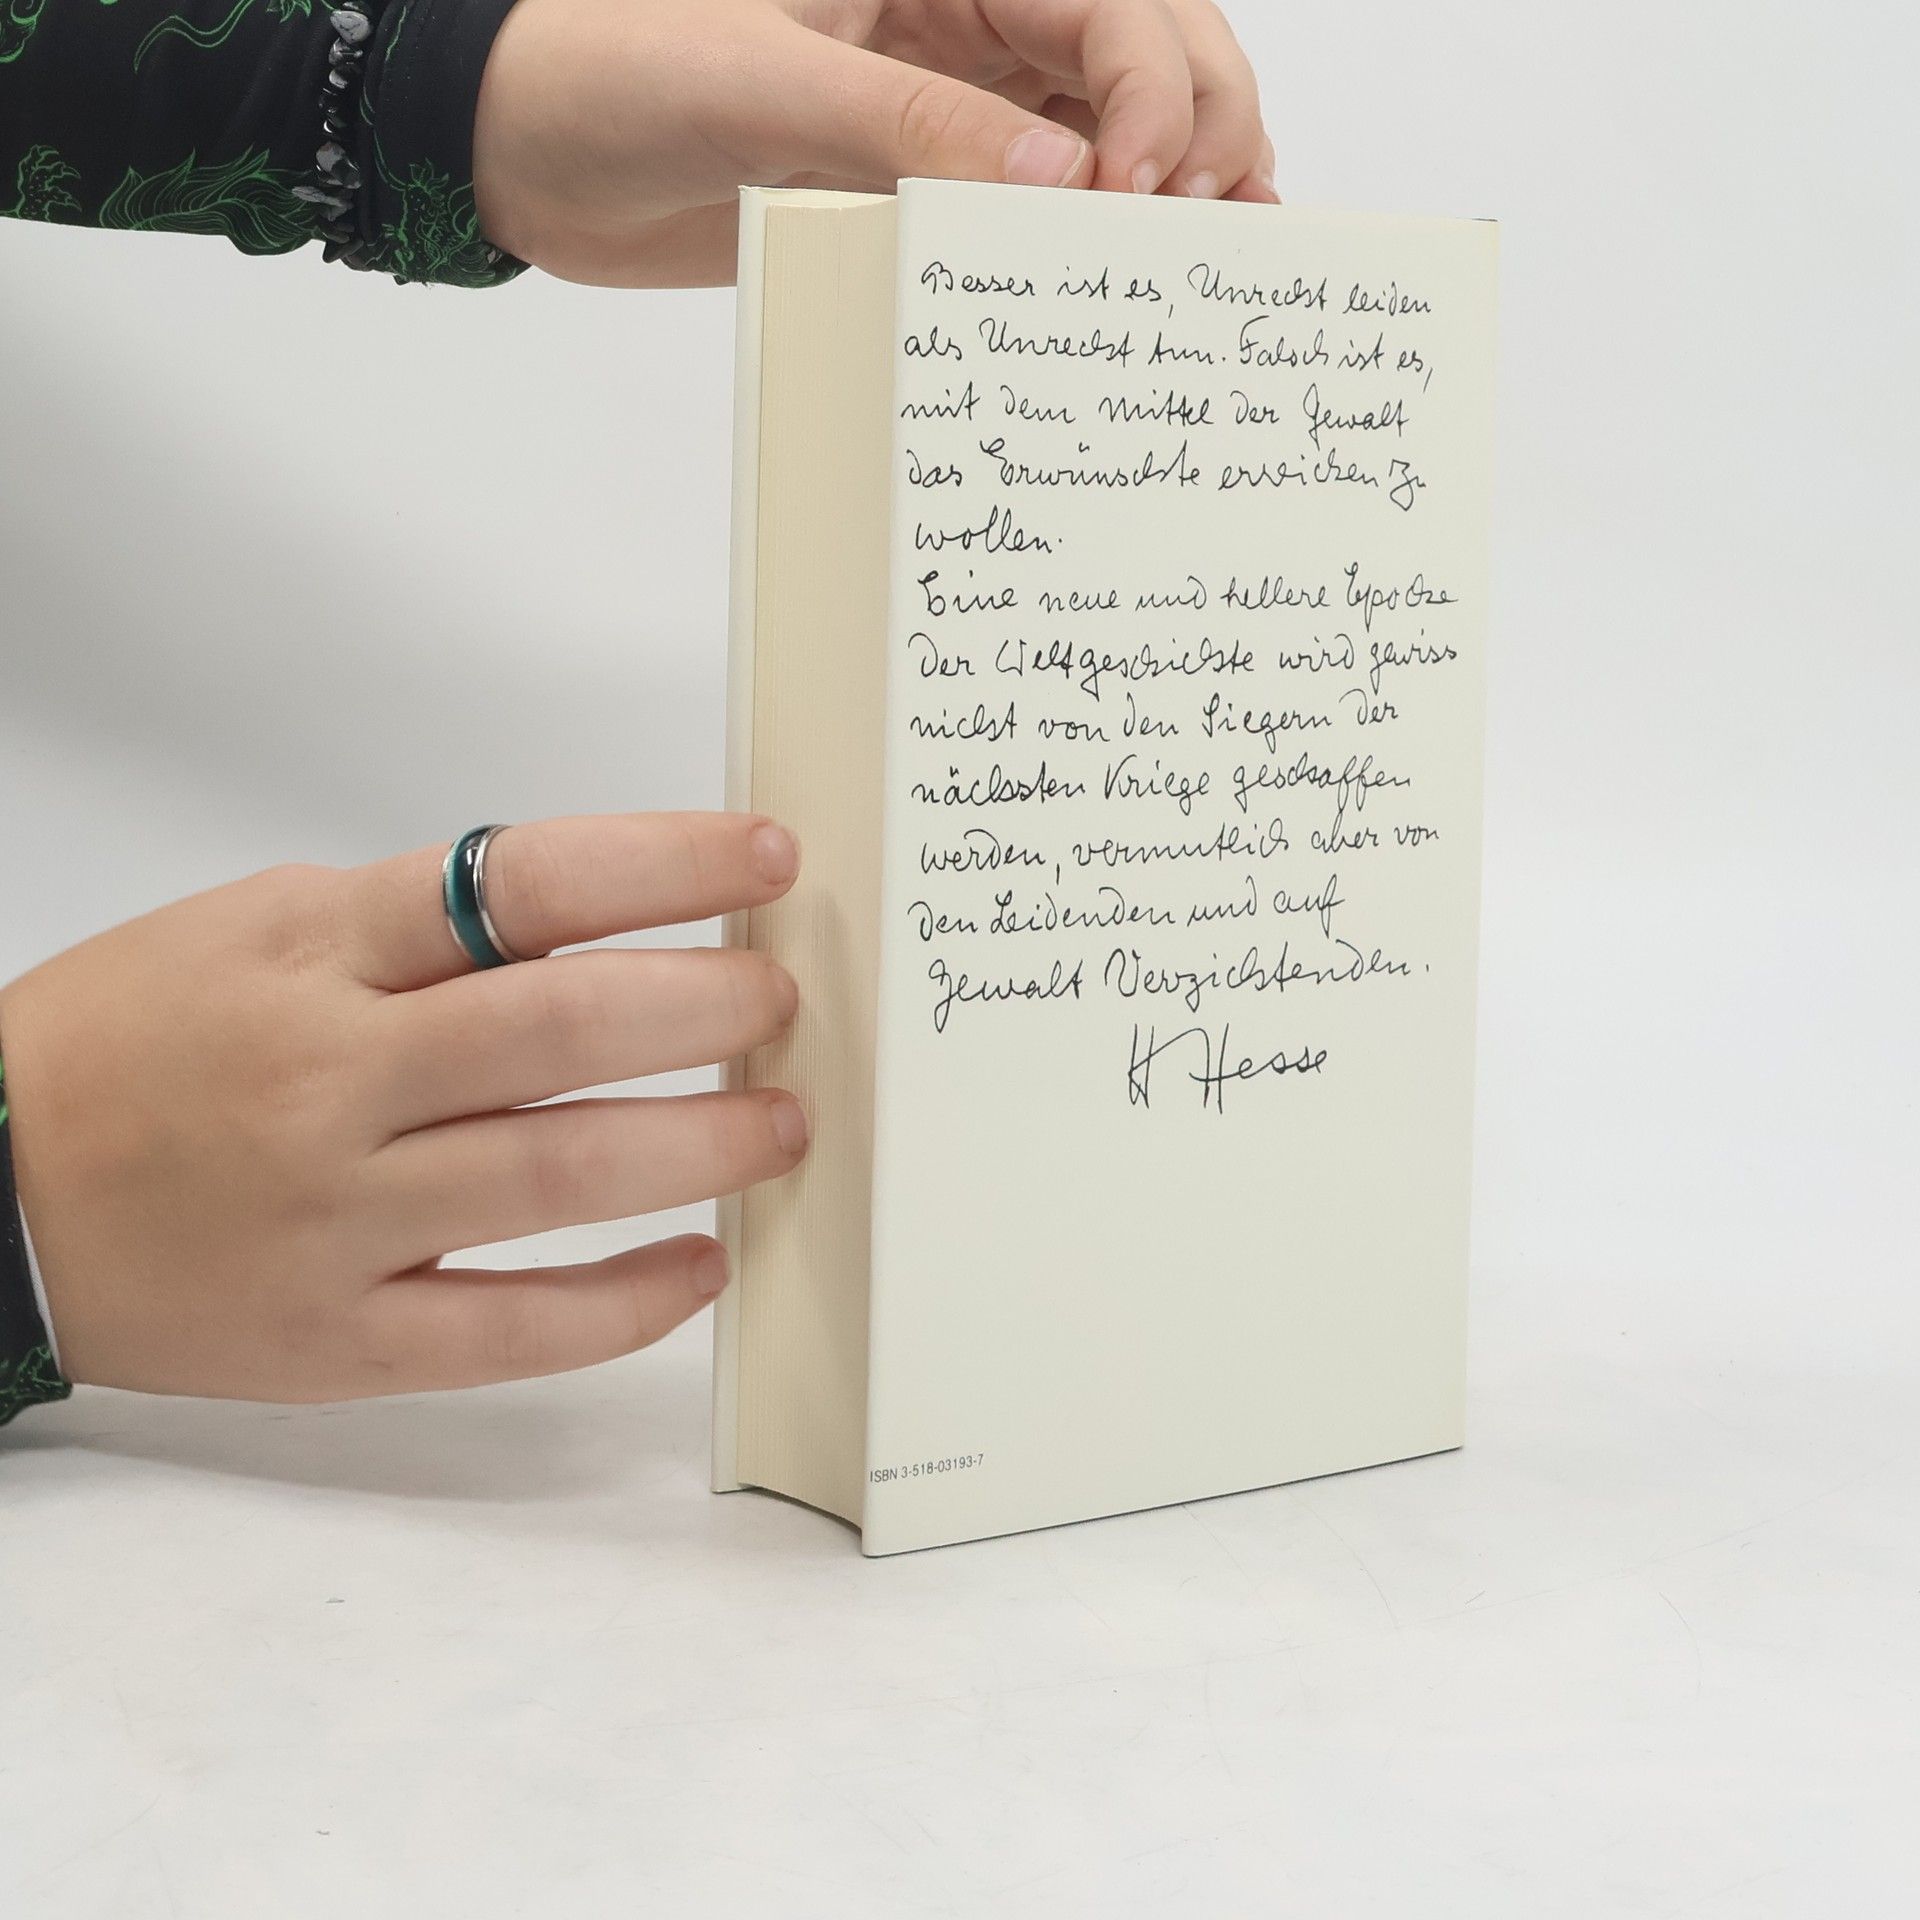 Besser ist es, Unrecht leiden
als Unrecht tun. Falsch ist es,
mit dem Mittel der Gewalt
das Erwünschte erreichen zu
wollen.
Eine neue und hellere Epoche
der Weltgeschichte wird gewiss
nicht von den Siegern der
nächsten Kriege geschaffen
werden, vermutlich aber von
den Leidenden und auf
Gewalt Verzichtenden.
H Hesse
ISBN 3-518-03193-7